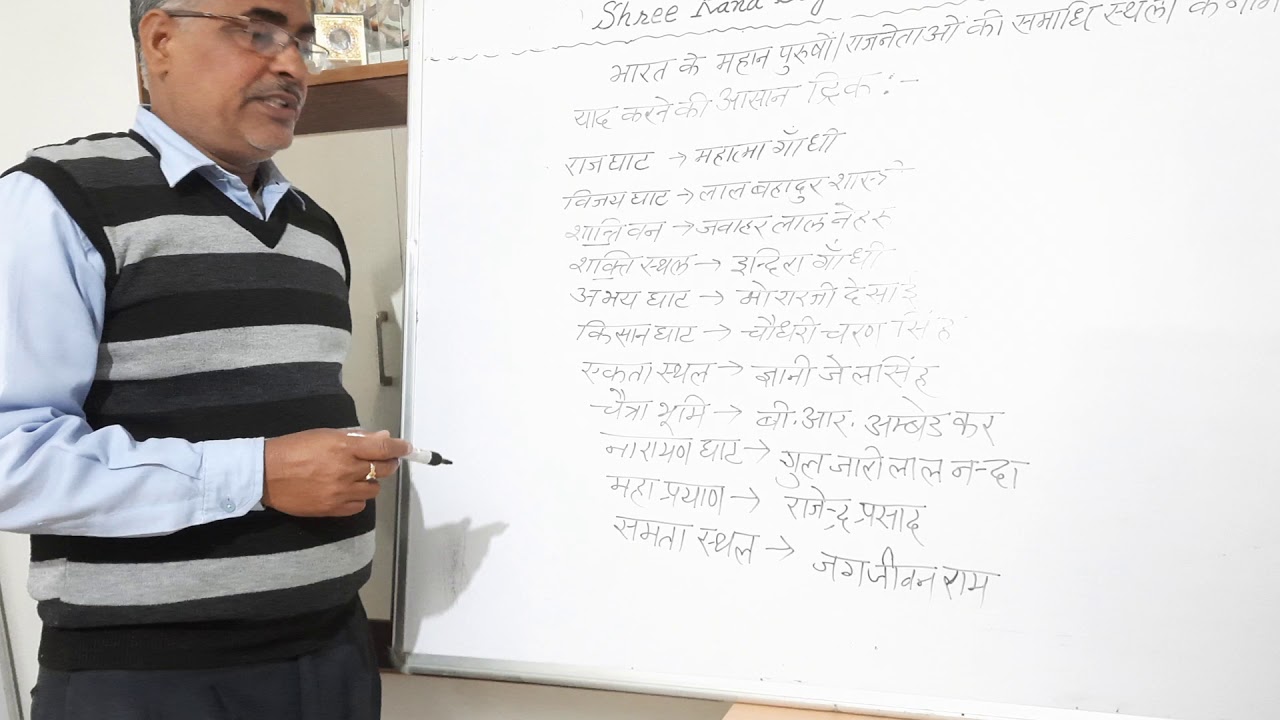 Shree
भारत के महान पुरुषों/राजनेताओं की समाधि स्थलों के नाम
याद करने की आसान ट्रिक :-
राजघाट → महात्मा गाँधी
विजय घाट → लाल बहादुर शास्त्री
शान्ति वन → जवाहर लाल नेहरू
शक्ति स्थल → इन्दिरा गाँधी
अभय घाट → मोरारजी देसाई
किसान घाट → चौधरी चरण सिंह
एकता स्थल → ज्ञानी जेलसिंह
चैत्रा भूमि → बी.आर. अम्बेडकर
नारायण घाट → गुलजारीलाल नन्दा
महा प्रयाण → राजेन्द्र प्रसाद
समता स्थल → जगजीवन राम